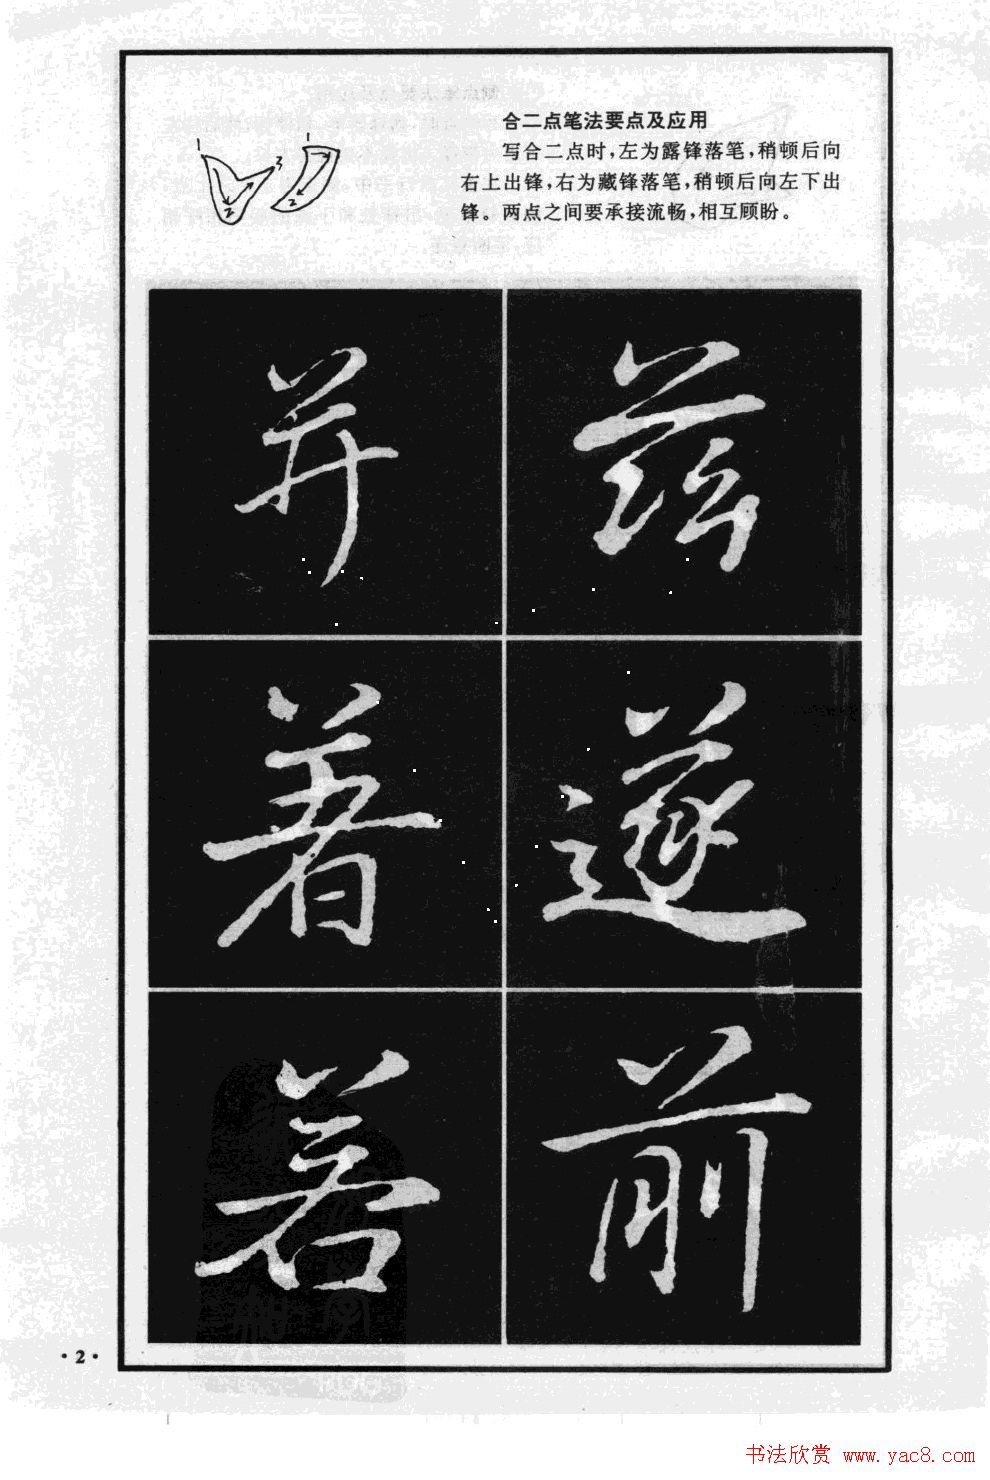 合二点笔法要点及应用
写合二点时，左为露锋落笔，稍顿后向
右上出锋，右为藏锋落笔，稍顿后向左下出
锋。两点之间要承接流畅，相互顾盼。
1 2 3 1 2
兹
遂
前
并
着
若
·2·
书法欣赏 www.yac8.com